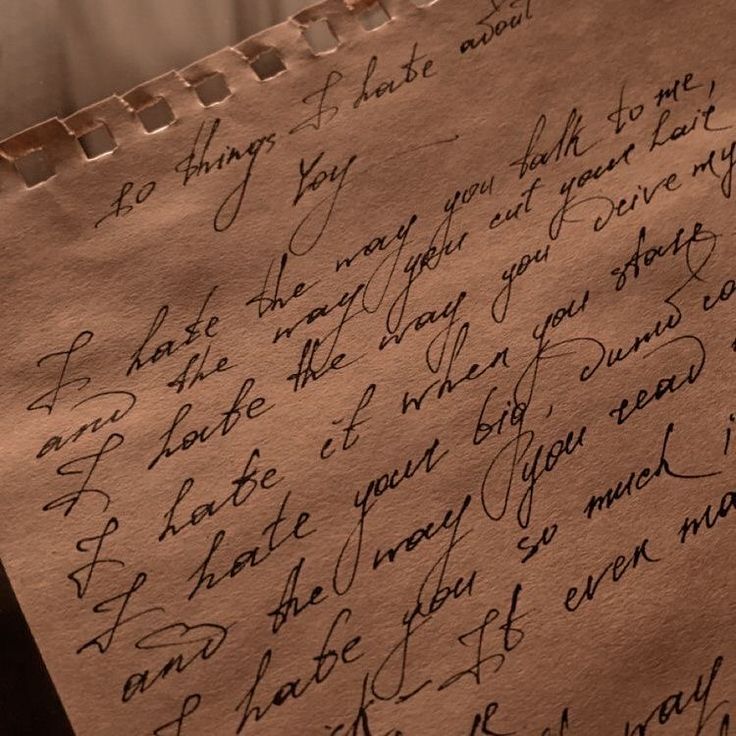 10 things I hate about
You
I hate the way you talk to me,
and the way you cut your hair
I hate the way you drive my
I hate it when you stare
I hate your big, dumb co
and the way you read
I hate you so much i
k - It even ma
way